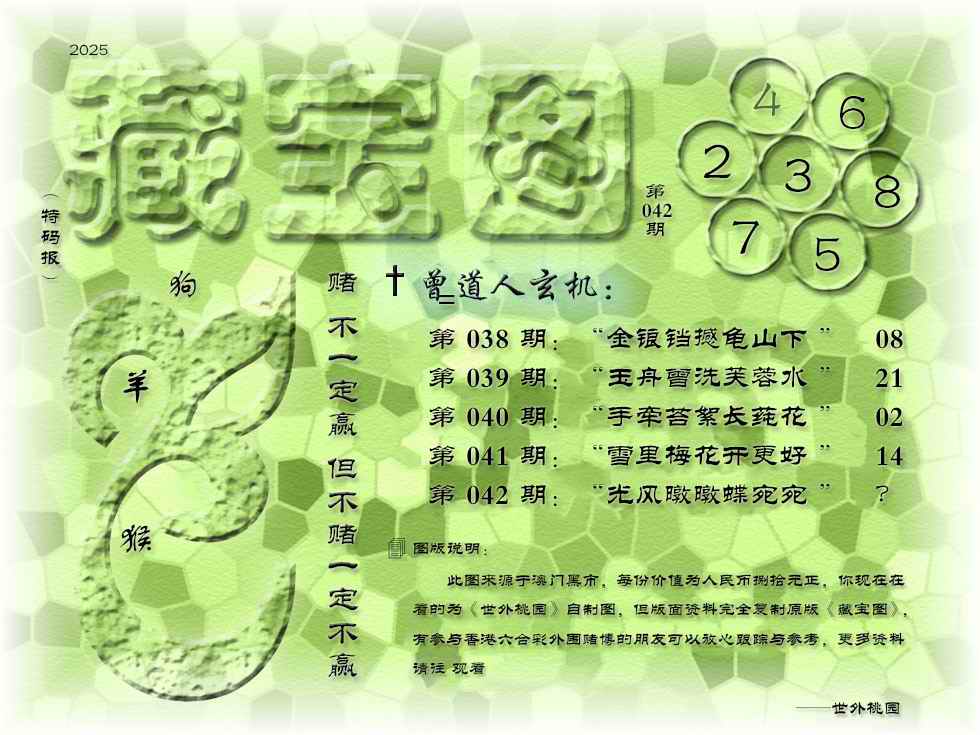 2025
藏宝图
（特码报）
第
042
期
4
6
2
3
8
7
5
狗
羊
猴
赌不一定赢但不赌一定不赢
曾道人玄机：
第 038 期：“金银铛撼龟山下” 08
第 039 期：“玉舟雪洗芙蓉水” 21
第 040 期：“手牵苔絮长莼花” 02
第 041 期：“雪里梅花开更好” 14
第 042 期：“光风暾暾蝶宛宛” ？
图版说明：
此图来源于澳门黑市，每份价值为人民币捌拾元正，你现在在
看的为《世外桃园》自制图，但版面资料完全复制原版《藏宝图》，
有参与香港六合彩外围赌博的朋友可以放心跟踪与参考，更多资料
请注 观看
——世外桃园